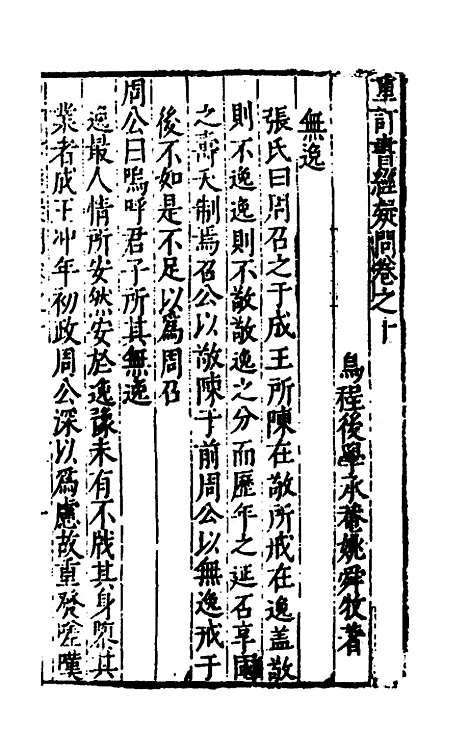 重訂書經疑問卷之十
烏程後學承菴姚舜牧著
無逸
張氏曰周召之于成王所陳在敬所戒在逸蓋敬
則不逸逸則不敬敬逸之分而歷年之延否享國
之壽夭制焉召公以敬陳于前周公以無逸戒于
後不如是不足以為周召
周公曰嗚呼君子所其無逸
逸最人情所安然安於逸豫未有不戕其身隳其
業者成王冲年初政周公深以為慮故重發嗟嘆